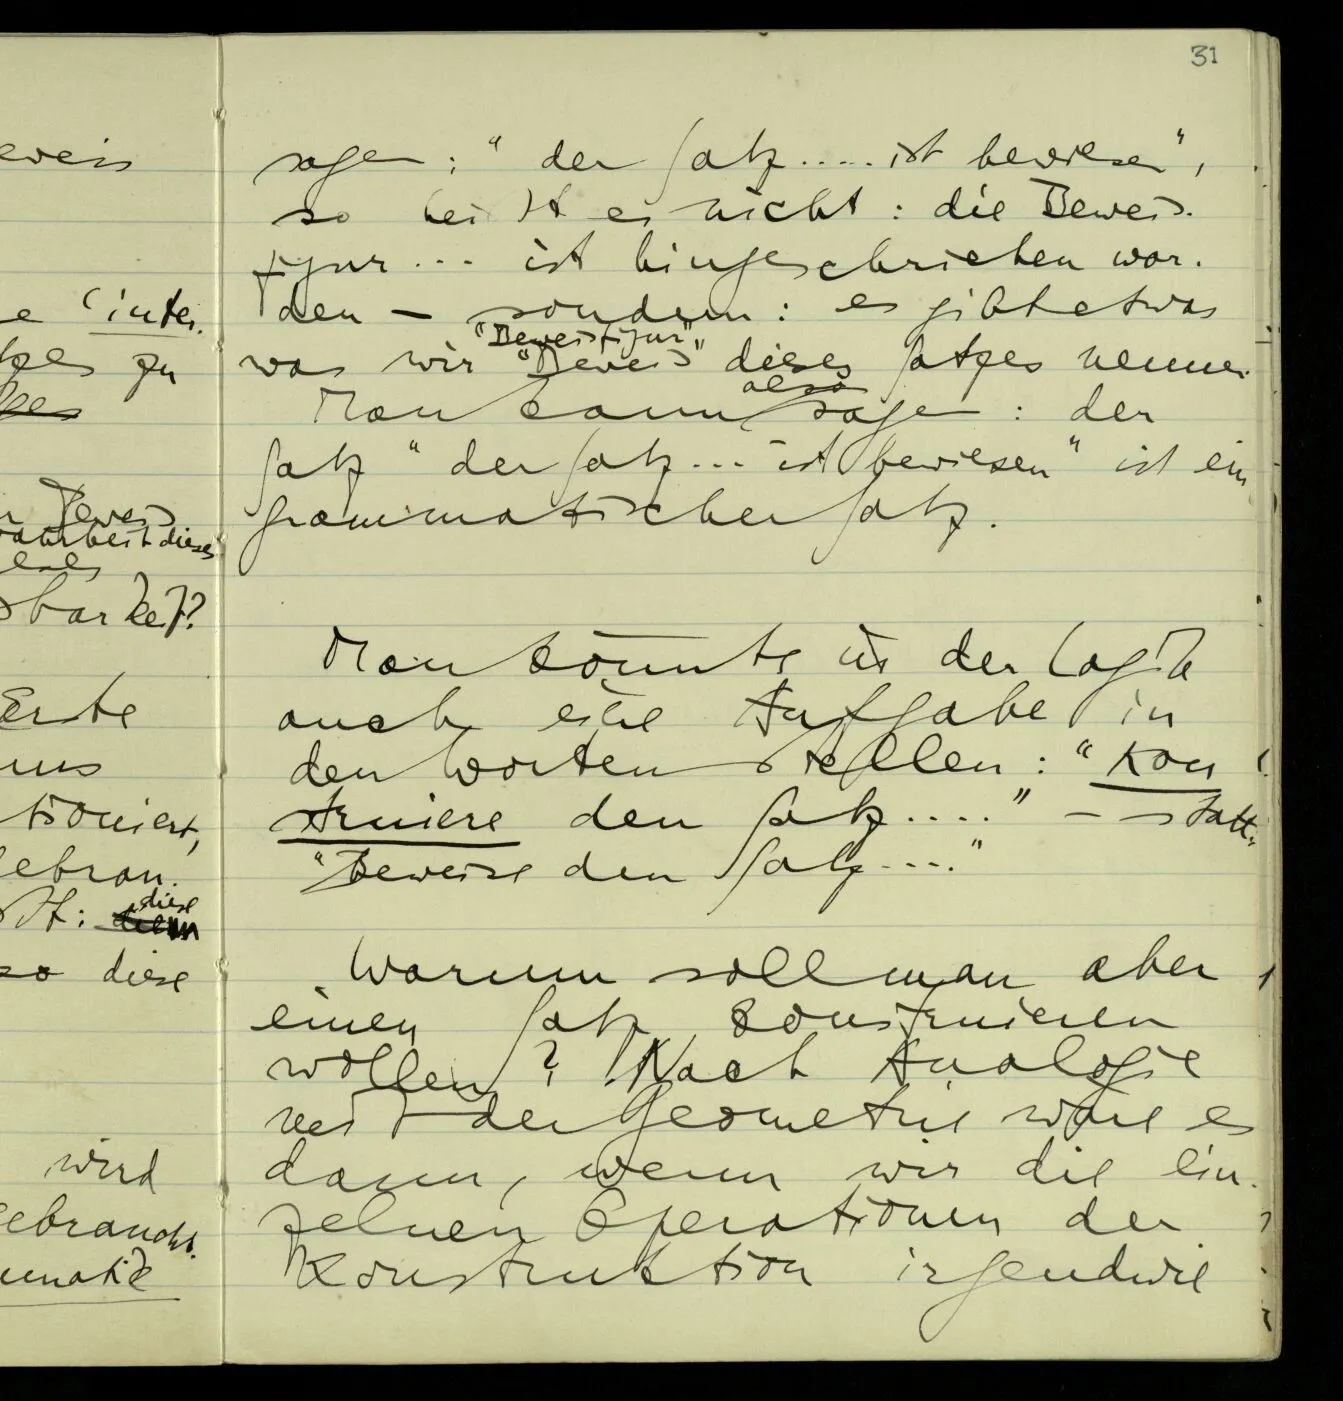 31
eweis
e "inter.
tzes zu
n Beweis
Wahrheit dieses
barkeit?
Erste
uns
tioniert,
gebrau.
ßt: diese
so diese
wird
gebraucht.
umatik
sagen: "der Satz ..... ist bewiesen",
so heißt es nicht: die Beweis-
figur ... ist hingeschrieben wor-
den — sondern: es gibt etwas
"Beweisfigur"
was wir "Beweis" dieses Satzes nennen.
also
Man kann sagen: der
Satz "der Satz ... ist bewiesen" ist ein
grammatischer Satz.
Man könnte in der Logik
auch eine Aufgabe in
den Worten stellen: "Kon
struiere den Satz ...." – statt:
"Beweise den Satz ...."
Warum soll man aber
einen Satz konstruieren
wollen? Nach Analogie
mit der Geometrie wäre es
dann, wenn wir die ein-
zelnen Operationen der
Konstruktion irgendwie